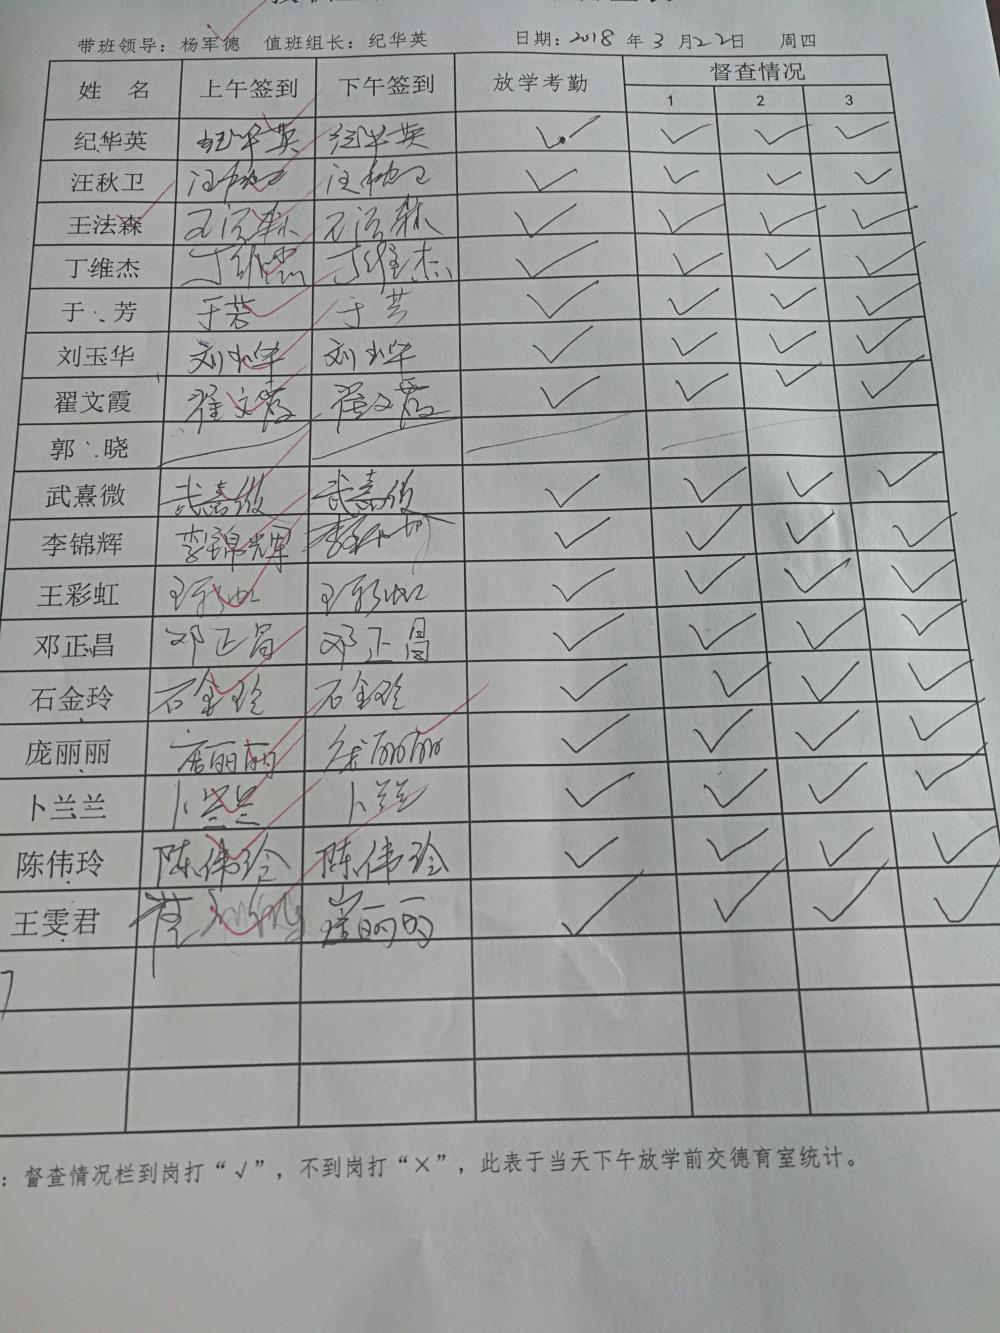 带班领导：杨军德 值班组长：纪华英 日期：2018年3月22日 周四
姓 名 上午签到 下午签到 放学考勤 督查情况
1 2 3
纪华英 纪华英 纪华英 ✓ ✓ ✓ ✓
汪秋卫 汪秋卫 汪秋卫 ✓ ✓ ✓ ✓
王法森 王法森 王法森 ✓ ✓ ✓ ✓
丁维杰 丁维杰 丁维杰 ✓ ✓ ✓ ✓
于 芳 于芳 于芳 ✓ ✓ ✓ ✓
刘玉华 刘玉华 刘玉华 ✓ ✓ ✓ ✓
翟文霞 翟文霞 翟文霞 ✓ ✓ ✓ ✓
郭 晓
武熹微 武熹微 武熹微 ✓ ✓ ✓ ✓
李锦辉 李锦辉 ✓ ✓ ✓ ✓
王彩虹 王彩虹 王彩虹 ✓ ✓ ✓ ✓
邓正昌 邓正昌 邓正昌 ✓ ✓ ✓ ✓
石金玲 石金玲 石金玲 ✓ ✓ ✓ ✓
庞丽丽 庞丽丽 庞丽丽 ✓ ✓ ✓ ✓
卜兰兰 卜兰兰 卜兰兰 ✓ ✓ ✓ ✓
陈伟玲 陈伟玲 陈伟玲 ✓ ✓ ✓ ✓
王雯君 崔丽丽 ✓ ✓ ✓ ✓
：督查情况栏到岗打“√”，不到岗打“×”，此表于当天下午放学前交德育室统计。